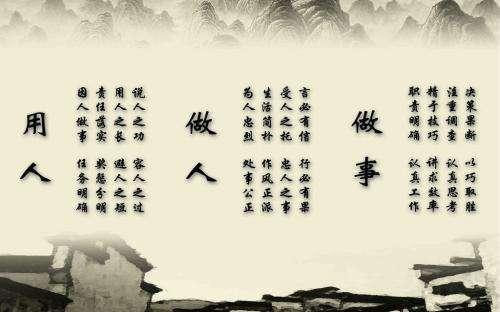 做事
决策果断 以巧取胜
注重调查 认真思考
精于技巧 讲求效率
职责明确 认真工作
做人
言必有信 行必有果
受人之托 忠人之事
生活简朴 作风正派
为人忠烈 处事公正
用人
说人之功 容人之过
用人之长 避人之短
责任落实 奖惩分明
因人做事 任务明确